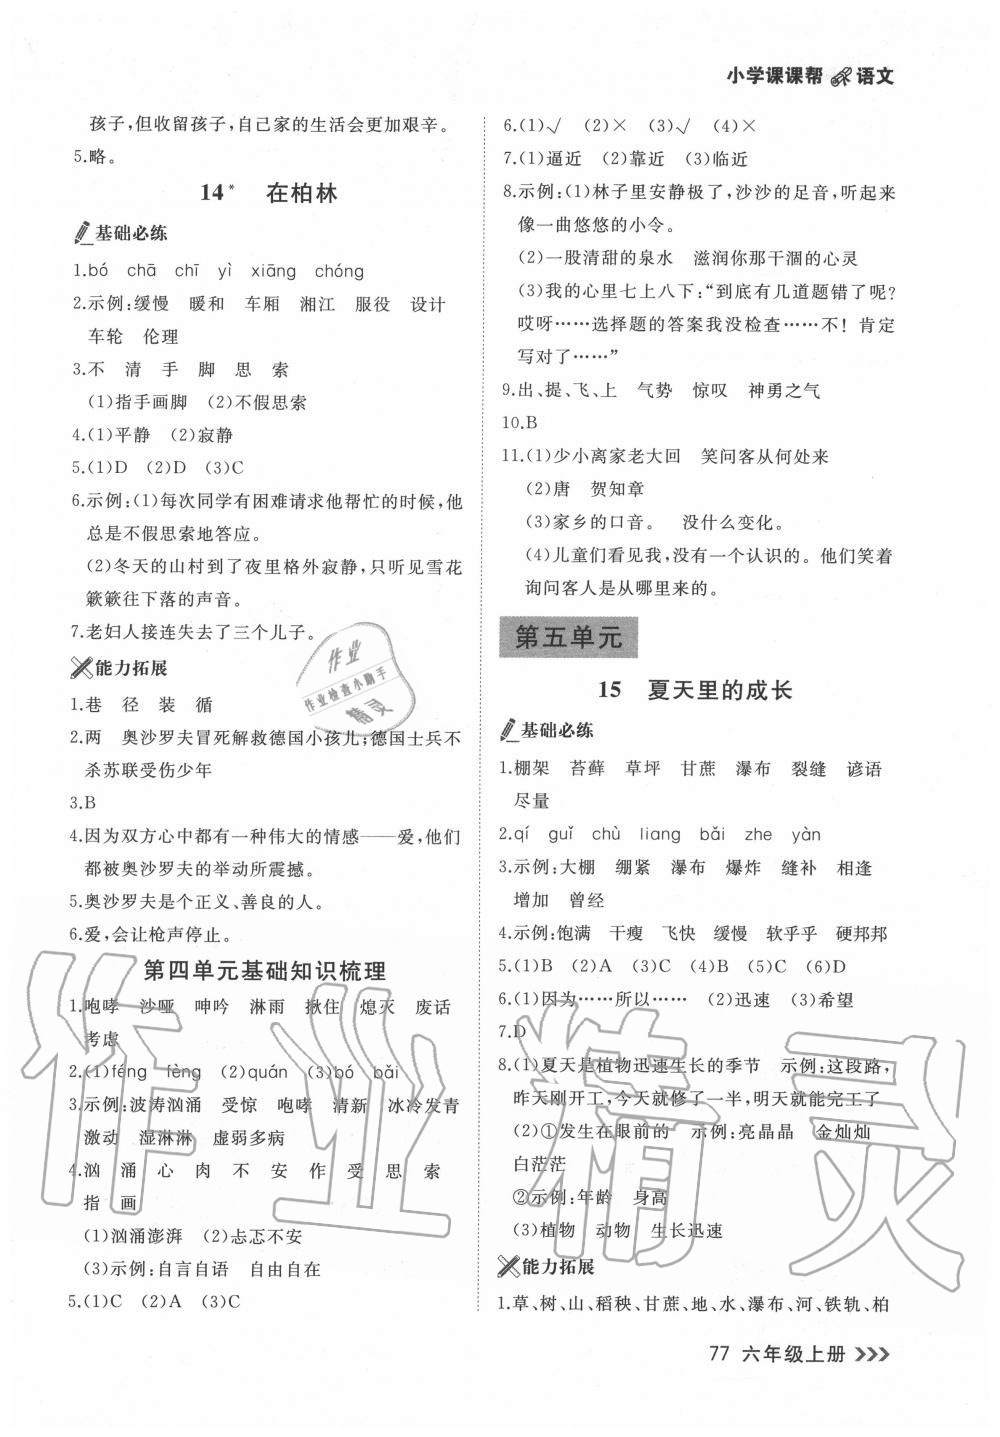 小学课课帮 语文
孩子,但收留孩子,自己家的生活会更加艰辛。
5.略。
14* 在柏林
基础必练
1.bó chā chī yì xiāng chóng
2.示例:缓慢 暖和 车厢 湘江 服役 设计
车轮 伦理
3.不 清 手 脚 思 索
(1)指手画脚 (2)不假思索
4.(1)平静 (2)寂静
5.(1)D (2)D (3)C
6.示例:(1)每次同学有困难请求他帮忙的时候,他
总是不假思索地答应。
(2)冬天的山村到了夜里格外寂静,只听见雪花
簌簌往下落的声音。
7.老妇人接连失去了三个儿子。
能力拓展
1.巷 径 装 循
2.两 奥沙罗夫冒死解救德国小孩儿;德国士兵不
杀苏联受伤少年
3.B
4.因为双方心中都有一种伟大的情感——爱,他们
都被奥沙罗夫的举动所震撼。
5.奥沙罗夫是个正义、善良的人。
6.爱,会让枪声停止。
第四单元基础知识梳理
1.咆哮 沙哑 呻吟 淋雨 揪住 熄灭 废话
考虑
2.(1)féng fèng (2)quán (3)bó bǎi
3.示例:波涛汹涌 受惊 咆哮 清新 冰冷发青
激动 湿淋淋 虚弱多病
4.汹 涌 心 肉 不 安 作 受 思 索
指 画
(1)汹涌澎湃 (2)忐忑不安
(3)示例:自言自语 自由自在
5.(1)C (2)A (3)C
6.(1)√ (2)× (3)√ (4)×
7.(1)逼近 (2)靠近 (3)临近
8.示例:(1)林子里安静极了,沙沙的足音,听起来
像一曲悠悠的小令。
(2)一股清甜的泉水 滋润你那干涸的心灵
(3)我的心里七上八下:“到底有几道题错了呢?
哎呀……选择题的答案我没检查……不! 肯定
写对了……”
9.出、提、飞、上 气势 惊叹 神勇之气
10.B
11.(1)少小离家老大回 笑问客从何处来
(2)唐 贺知章
(3)家乡的口音。 没什么变化。
(4)儿童们看见我,没有一个认识的。他们笑着
询问客人是从哪里来的。
第五单元
15 夏天里的成长
基础必练
1.棚架 苔藓 草坪 甘蔗 瀑布 裂缝 谚语
尽量
2.qí guǐ chù liang bǎi zhe yàn
3.示例:大棚 绷紧 瀑布 爆炸 缝补 相逢
增加 曾经
4.示例:饱满 干瘦 飞快 缓慢 软乎乎 硬邦邦
5.(1)B (2)A (3)C (4)B (5)C (6)D
6.(1)因为……所以…… (2)迅速 (3)希望
7.D
8.(1)夏天是植物迅速生长的季节 示例:这段路,
昨天刚开工,今天就修了一半,明天就能完工了
(2)①发生在眼前的 示例:亮晶晶 金灿灿
白茫茫
②示例:年龄 身高
(3)植物 动物 生长迅速
能力拓展
1.草、树、山、稻秧、甘蔗、地、水、瀑布、河、铁轨、柏
77 六年级上册
作业
作业检查小助手
精灵
作业精灵